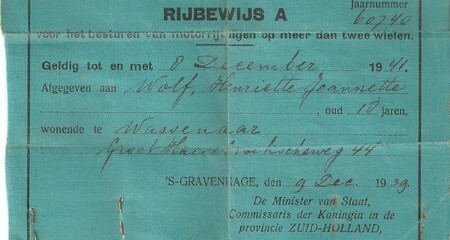 RIJBEWIJS A
Jaarnummer
60740
voor het besturen van motorrijtuigen op meer dan twee wielen.
Geldig tot en met 8 December 1941.
Afgegeven aan Wolf, Henriette Jeannette
, oud 18 jaren,
wonende te Wassenaar
Groot Haesebroekscheweg 44
'S-GRAVENHAGE, den 9 Dec. 1939
De Minister van Staat,
Commissaris der Koningin in de
provincie ZUID-HOLLAND,